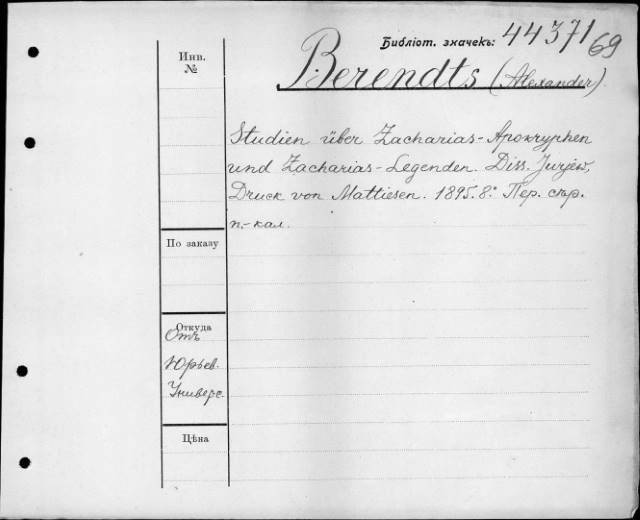 Библіот. значекъ: 44371/69
Инв.
№
Berendts (Alexander).
Studien über Zacharias-Apokryphen
und Zacharias-Legenden. Diss. Jurjew,
Druck von Mattiesen. 1895. 8.° Пер. сѣр.
п.-кал.
По заказу
Откуда
Отъ
Юрьев.
Универс.
Цѣна